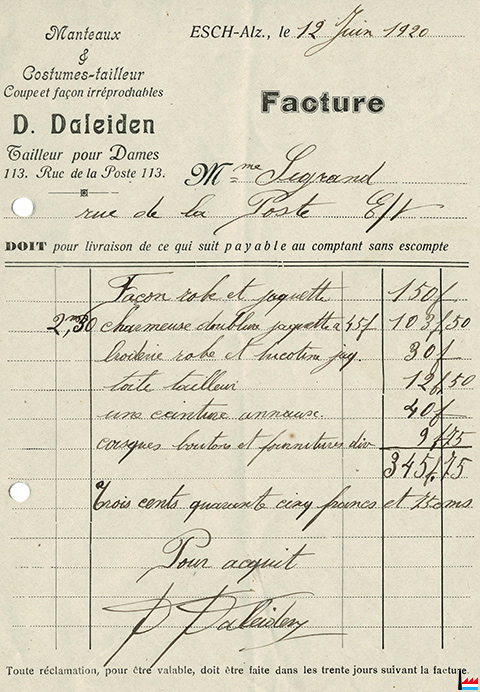 Manteaux
&
Costumes-tailleur
Coupe et façon irréprochables
D. Daleiden
Tailleur pour Dames
113. Rue de la Poste 113.
ESCH-Alz., le 12 Juin 1920
Facture
Mme Legrand
rue de la Poste E/V
DOIT pour livraison de ce qui suit payable au comptant sans escompte
Façon robe et jaquette 150f
2m,30 charmeuse doublure jaquette a 45f 103f50
broderie robe et tricotine jaq. 30f
toile tailleur 12f,50
une ceinture 40f
boutons et fournitures div 9f75
345f,75
Trois cents quarante cinq francs et 75 cms
Pour acquit
D Daleiden
Toute réclamation, pour être valable, doit être faite dans les trente jours suivant la facture.